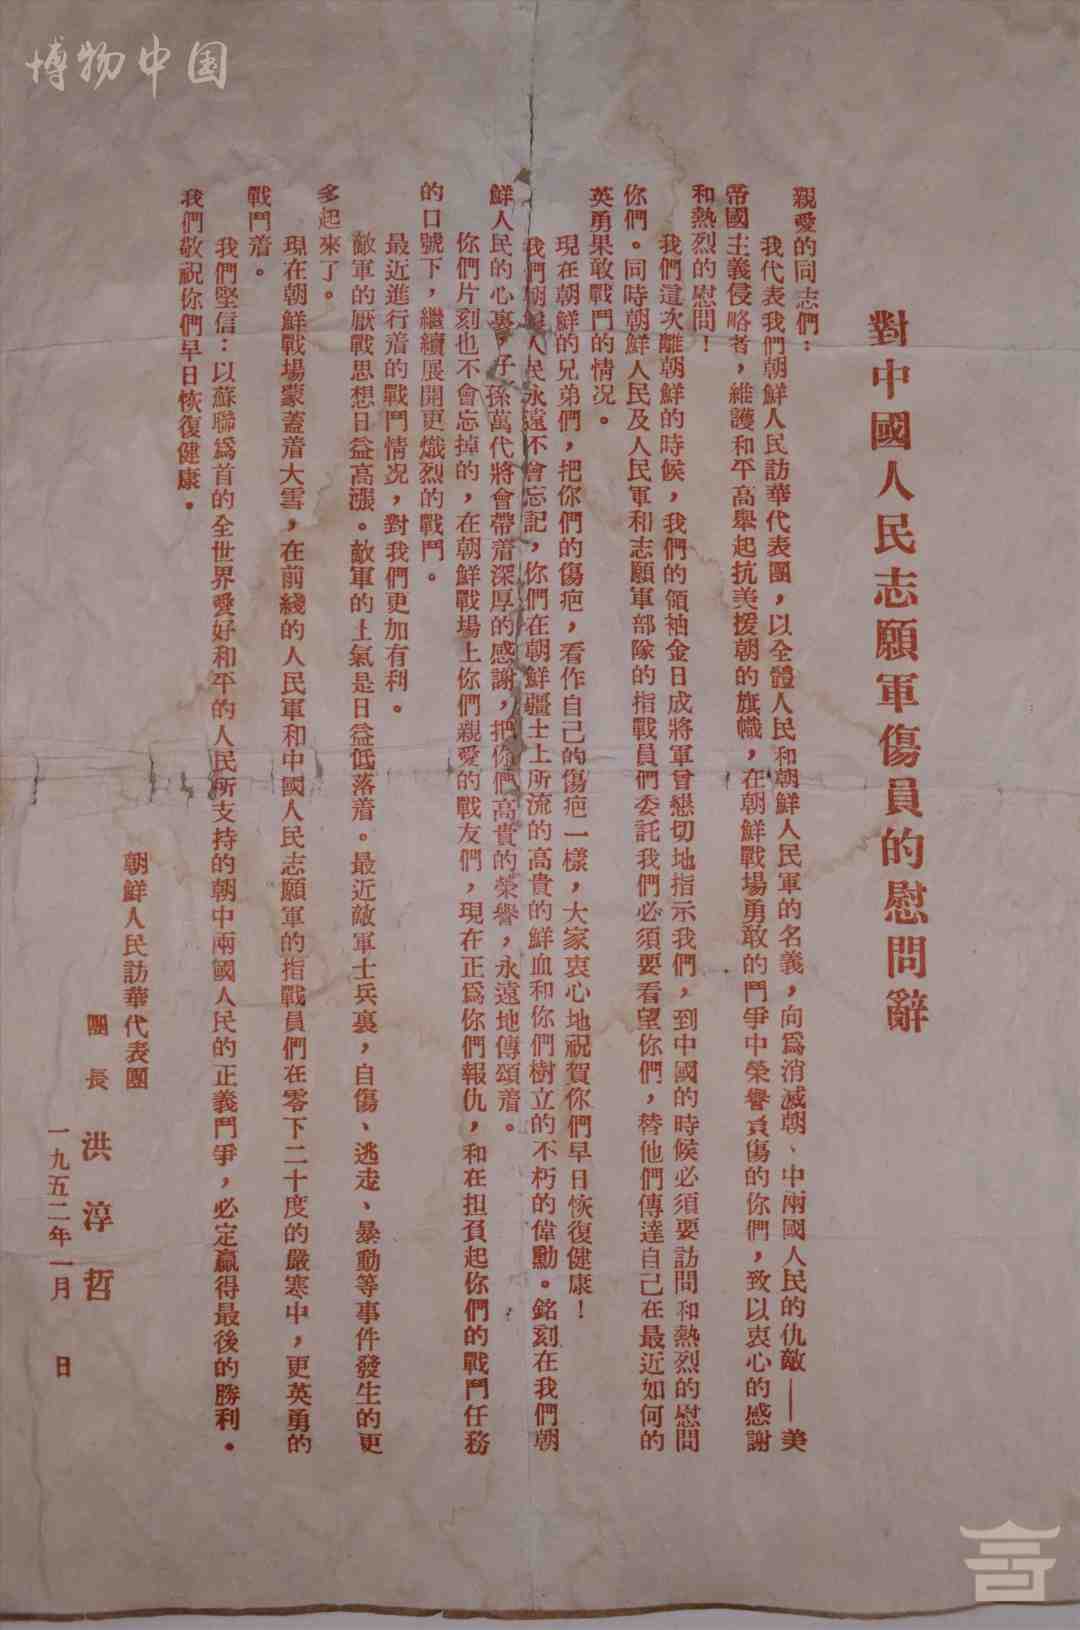 博物中国
對中國人民志願軍傷員的慰問辭
親愛的同志們：
我代表我們朝鮮人民訪華代表團，以全體人民和朝鮮人民軍的名義，向爲消滅朝、中兩國人民的仇敵——美
帝國主義侵略者，維護和平高舉起抗美援朝的旗幟，在朝鮮戰場勇敢的鬥爭中榮譽負傷的你們，致以衷心的感謝
和熱烈的慰問！
我們這次離朝鮮的時候，我們的領袖金日成將軍曾懇切地指示我們，到中國的時候必須要訪問和熱烈的慰問
你們。同時朝鮮人民及人民軍和志願軍部隊的指戰員們委託我們必須要看望你們，替他們傳達自己在最近如何的
英勇果敢戰鬥的情况。
現在朝鮮的兄弟們，把你們的傷疤，看作自己的傷疤一樣，大家衷心地祝賀你們早日恢復健康！
我們朝鮮人民永遠不會忘記，你們在朝鮮疆土上所流的高貴的鮮血和你們樹立的不朽的偉勳。銘刻在我們朝
鮮人民的心裏，子孫萬代將會帶着深厚的感謝，把你們高貴的榮譽，永遠地傳頌着。
你們片刻也不會忘掉的，在朝鮮戰場上你們親愛的戰友們，現在正爲你們報仇，和在担負起你們的戰鬥任務
的口號下，繼續展開更熾烈的戰鬥。
最近進行着的戰鬥情况，對我們更加有利。
敵軍的厭戰思想日益高漲。敵軍的士氣是日益低落着。最近敵軍士兵裏，自傷、逃走、暴動等事件發生的更
多起來了。
現在朝鮮戰場蒙蓋着大雪，在前綫的人民軍和中國人民志願軍的指戰員們在零下二十度的嚴寒中，更英勇的
戰鬥着。
我們堅信：以蘇聯爲首的全世界愛好和平的人民所支持的朝中兩國人民的正義鬥爭，必定贏得最後的勝利．
我們敬祝你們早日恢復健康．
朝鮮人民訪華代表團
團長 洪淳哲
一九五二年一月 日